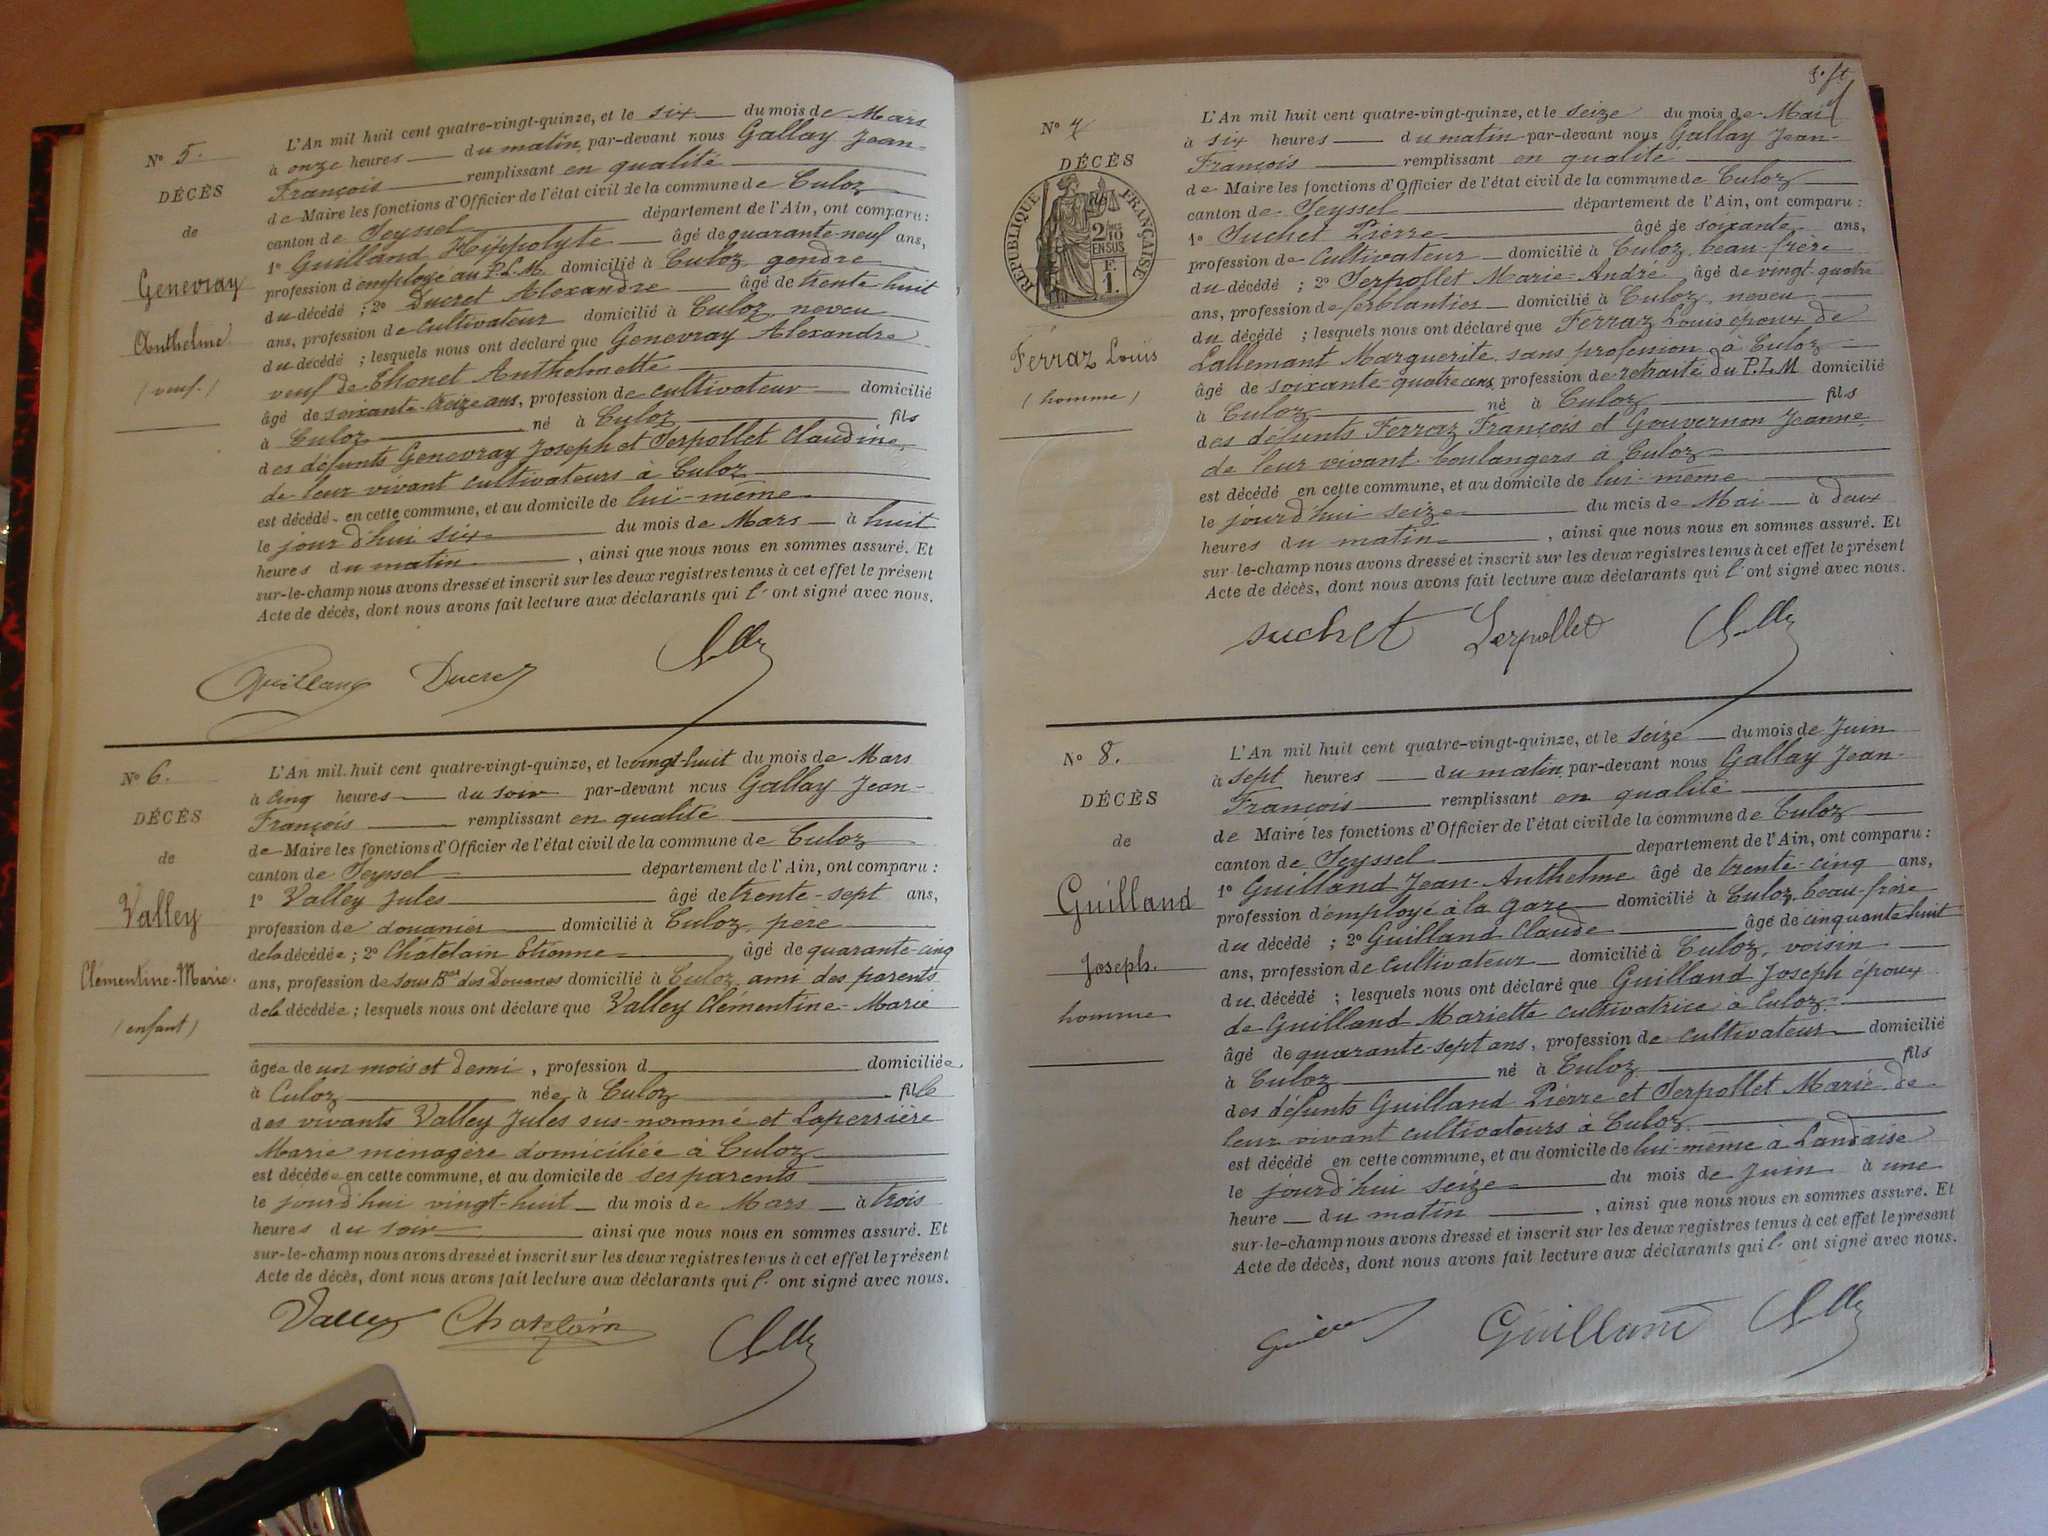 N° 5.
DÉCÈS
de
Genevray
Anthelme
(veuf.)
L'An mil huit cent quatre-vingt-quinze, et le six du mois de Mars
à onze heures du matin par-devant nous Gallay Jean-
François remplissant en qualité
de Maire les fonctions d'Officier de l'état civil de la commune de Culoz
canton de Seyssel département de l'Ain, ont comparu :
1° Guilland Hippolyte âgé de quarante-neuf ans,
profession d'employé au P.L.M. domicilié à Culoz, gendre
du décédé ; 2° Ducret Alexandre âgé de trente huit
ans, profession de cultivateur domicilié à Culoz, neveu
du décédé ; lesquels nous ont déclaré que Genevray Alexandre
veuf de Thonet Anthelmette
âgé de soixante-treize ans, profession de cultivateur domicilié
à Culoz né à Culoz fils
des défunts Genevray Joseph et Serpollet Claudine,
de leur vivant cultivateurs à Culoz
est décédé en cette commune, et au domicile de lui-même
le jourd'hui six du mois de Mars à huit
heures du matin, ainsi que nous nous en sommes assuré. Et
sur-le-champ nous avons dressé et inscrit sur les deux registres tenus à cet effet le présent
Acte de décès, dont nous avons fait lecture aux déclarants qui l' ont signé avec nous.
Guilland Ducret
N° 6.
DÉCÈS
de
Valley
Clémentine-Marie.
(enfant)
L'An mil huit cent quatre-vingt-quinze, et le vingt-huit du mois de Mars
à cinq heures du soir par-devant nous Gallay Jean-
François remplissant en qualité
de Maire les fonctions d'Officier de l'état civil de la commune de Culoz
canton de Seyssel département de l'Ain, ont comparu :
1° Valley Jules âgé de trente-sept ans,
profession de douanier domicilié à Culoz, père
de la décédée ; 2° Châtelain Etienne âgé de quarante-cinq
ans, profession de sous Bier des Douanes domicilié à Culoz, ami des parents
de la décédée ; lesquels nous ont déclaré que Valley Clémentine-Marie
âgée de un mois et demi, profession d domiciliée
à Culoz née à Culoz fille
des vivants Valley Jules sus-nommé et Laperrière
Marie ménagère domiciliée à Culoz
est décédée en cette commune, et au domicile de ses parents
le jourd'hui vingt-huit du mois de Mars à trois
heures du soir ainsi que nous nous en sommes assuré. Et
sur-le-champ nous avons dressé et inscrit sur les deux registres tenus à cet effet le présent
Acte de décès, dont nous avons fait lecture aux déclarants qui l' ont signé avec nous.
Valley Chatelain
N° 7
DÉCÈS
RÉPUBLIQUE FRANÇAISE
2/10
EN SUS
F.
1.
Ferraz Louis
(homme)
L'An mil huit cent quatre-vingt-quinze, et le seize du mois de Mai
à six heures du matin par-devant nous Gallay Jean-
François remplissant en qualité
de Maire les fonctions d'Officier de l'état civil de la commune de Culoz
canton de Seyssel département de l'Ain, ont comparu :
1° Suchet Pierre âgé de soixante ans,
profession de Cultivateur domicilié à Culoz, beau-frère
du décédé ; 2° Serpollet Marie-André âgé de vingt-quatre
ans, profession de ferblantier domicilié à Culoz, neveu
du décédé ; lesquels nous ont déclaré que Ferraz Louis époux de
Lallemant Marguerite sans profession à Culoz
âgé de soixante-quatre ans, profession de retraité du P.L.M domicilié
à Culoz né à Culoz fils
des défunts Ferraz François et Gouvernon Jeanne,
de leur vivant boulangers à Culoz
est décédé en cette commune, et au domicile de lui-même
le jourd'hui seize du mois de Mai à deux
heures du matin, ainsi que nous nous en sommes assuré. Et
sur-le-champ nous avons dressé et inscrit sur les deux registres tenus à cet effet le présent
Acte de décès, dont nous avons fait lecture aux déclarants qui l' ont signé avec nous.
Suchet Serpollet
N° 8.
DÉCÈS
de
Guilland
Joseph.
homme
L'An mil huit cent quatre-vingt-quinze, et le seize du mois de Juin
à sept heures du matin par-devant nous Gallay Jean-
François remplissant en qualité
de Maire les fonctions d'Officier de l'état civil de la commune de Culoz
canton de Seyssel département de l'Ain, ont comparu :
1° Guilland Jean-Anthelme âgé de trente-cinq ans,
profession d'employé à la gare domicilié à Culoz, beau-frère
du décédé ; 2° Guilland Claude âgé de cinquante huit
ans, profession de cultivateur domicilié à Culoz, voisin
du décédé ; lesquels nous ont déclaré que Guilland Joseph époux
de Guilland Mariette cultivatrice à Culoz
âgé de quarante-sept ans, profession de cultivateur domicilié
à Culoz né à Culoz fils
des défunts Guilland Pierre et Serpollet Marie de
leur vivant cultivateurs à Culoz
est décédé en cette commune, et au domicile de lui-même à Landaise
le jourd'hui seize du mois de Juin à une
heure du matin, ainsi que nous nous en sommes assuré. Et
sur-le-champ nous avons dressé et inscrit sur les deux registres tenus à cet effet le présent
Acte de décès, dont nous avons fait lecture aux déclarants qui l' ont signé avec nous.
Guilland